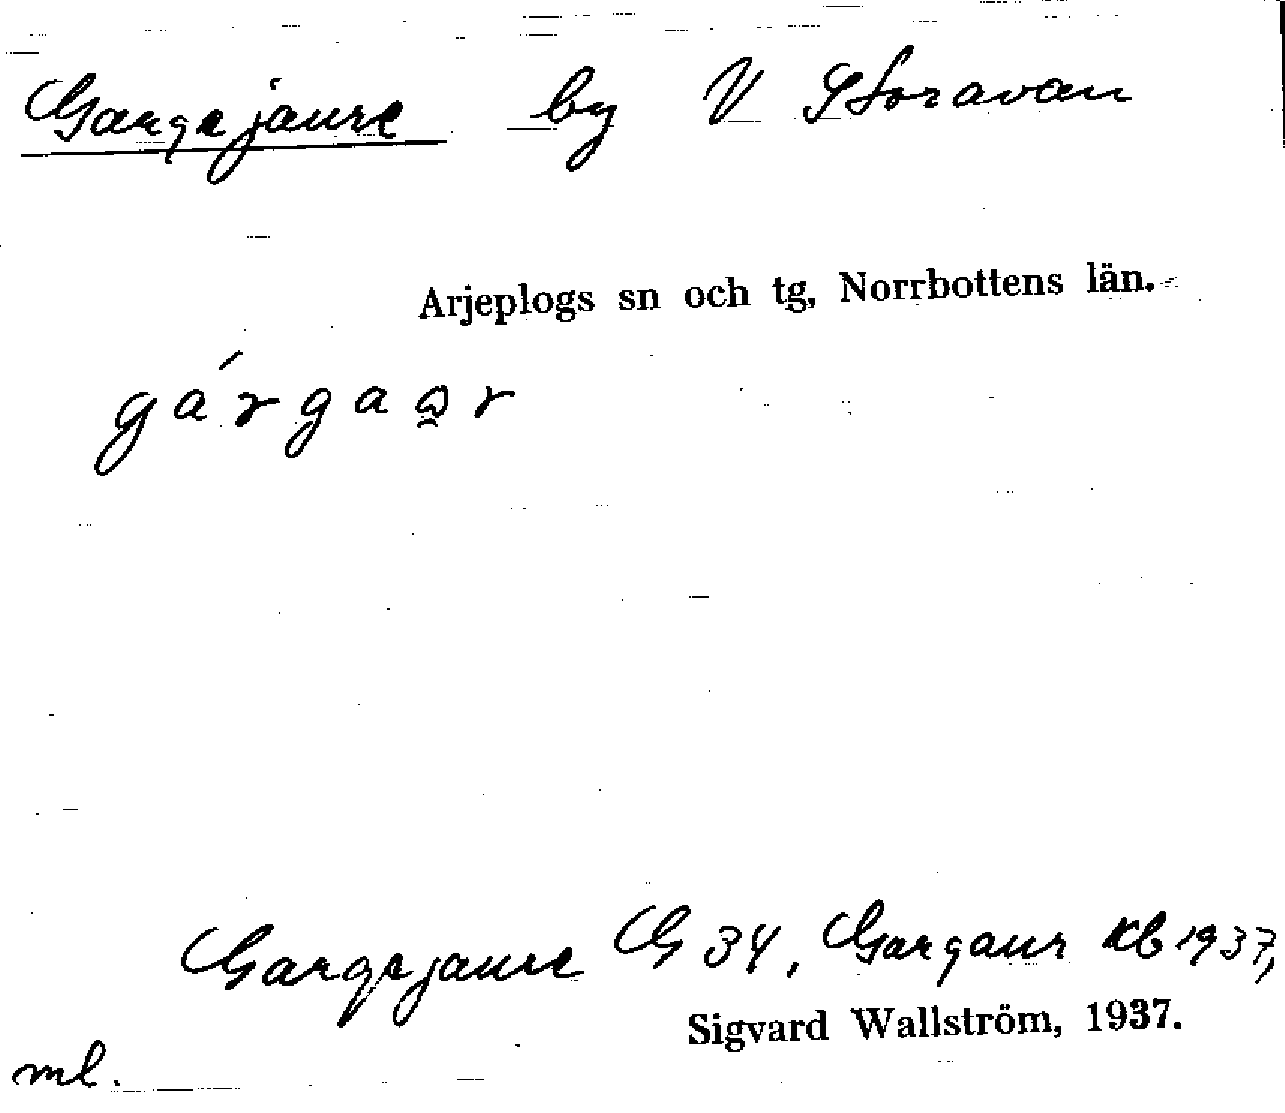 Gargejaure by V Storavan
Arjeplogs sn och tg, Norrbottens län.
gárgaɷ̯r
Gargejaure G 34, Gargaur Kb 1937,
Sigvard Wallström, 1937.
ml.